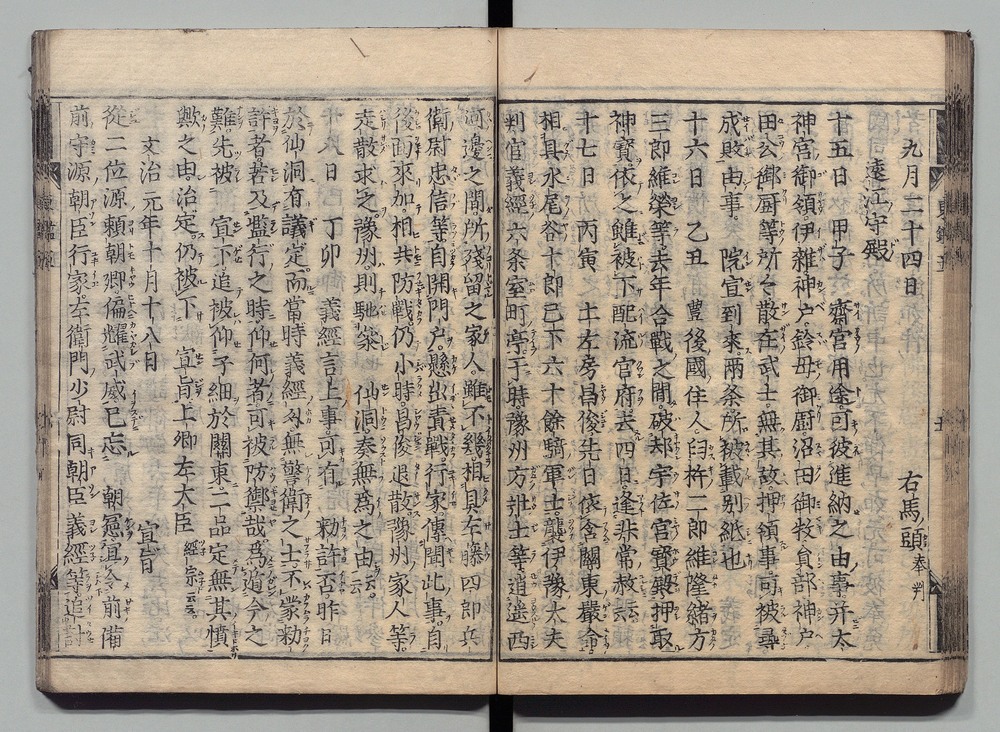 九月二十四日　右馬頭奉判
遠江守殿
十五日　甲子　齋宮用途可被進納之由事并太
神宮御領伊雑神戸鈴母御厨沼田御牧負部神戸
田公御厨等所々散在武士無其故押領事可被尋
成敗由事　院宣到來両条所被載别紙也
十六日　乙丑　豊後國住人臼杵二郎維隆緒方
三郎維榮等去年合戰之間破却宇佐宮寳殿押取
神寳依之雖被下配流官府去四日逢非常赦云云
十七日　丙寅　土左房昌俊先日依含關東嚴命
相具水尾谷十郎已下六十餘騎軍士襲伊豫大夫
判官義經六条室町亭于時豫州方壯士等逍遥西
河邊之間所殘留之家人雖不幾相具左藤四郎兵
衛尉忠信等自開門戸懸出責戰行家傳聞此事自
後面來加相共防戰仍小時昌俊退散豫州家人等
走散求之豫州則馳參　仙洞奏無為之由云云
十八日　丁卯　義經言上事可有　勅許否昨日
於仙洞有議定而當時義經外無警衛之士不蒙勅
許者若及濫行之時仰何者可被防禦哉爲遁今之
難先被　宣下追被仰子細於關東二品定無其憤
歟之由治定仍被下　宣旨上卿左大臣經宗云云
文治元年十月十八日　宣旨
從二位源頼朝卿偏耀武威已忘　朝憲宜令前備
前守源朝臣行家左衛門少尉同朝臣義經等追討